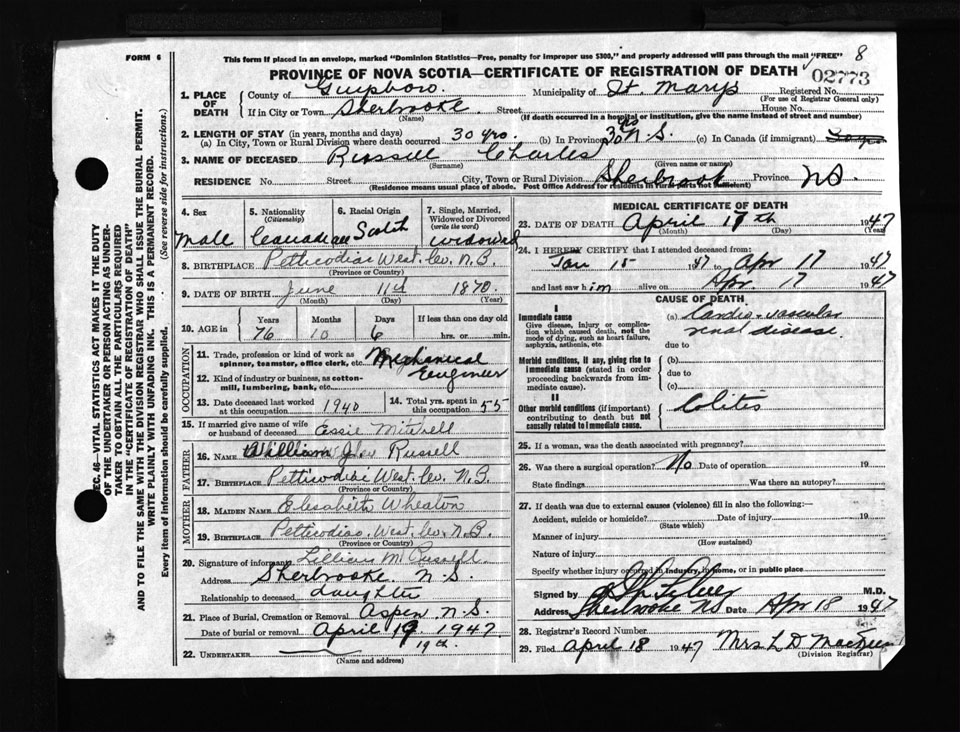 FORM 6
This form if placed in an envelope, marked "Dominion Statistics—Free, penalty for improper use $300," and properly addressed will pass through the mail "FREE" 8
PROVINCE OF NOVA SCOTIA—CERTIFICATE OF REGISTRATION OF DEATH 02773
1. PLACE OF DEATH County of Guysboro. Municipality of St. Marys Registered No.
(For use of Registrar General only)
If in City or Town Sherbrooke Street House No.
(Name) (If death occurred in a hospital or institution, give the name instead of street and number)
2. LENGTH OF STAY (in years, months and days)
(a) In City, Town or Rural Division where death occurred 30 yrs. (b) In Province 30 yrs N.S. (c) In Canada (if immigrant)
3. NAME OF DECEASED Russell Charles
(Surname) (Given name or names)
RESIDENCE No. Street City, Town or Rural Division Sherbrook Province NS.
(Residence means usual place of abode. Post Office Address for residents in rural parts not sufficient)
4. Sex Male
5. Nationality (Citizenship) Canadian
6. Racial Origin Scotch
7. Single, Married, Widowed or Divorced (write the word) widowed
8. BIRTHPLACE Petticodiac West. Co. N.B.
(Province or Country)
9. DATE OF BIRTH June 11th 1870.
(Month) (Day) (Year)
10. AGE in Years Months Days If less than one day old
76 10 6 hrs. or min.
OCCUPATION
11. Trade, profession or kind of work as spinner, teamster, office clerk, etc. Mechanical Engineer
12. Kind of industry or business, as cotton-mill, lumbering, bank, etc.
13. Date deceased last worked at this occupation 1940
14. Total yrs. spent in this occupation 55
15. If married give name of wife or husband of deceased Essie Mitchell
FATHER
16. NAME William Russell
17. BIRTHPLACE Petticodiac West. Co. N.B.
(Province or Country)
MOTHER
18. MAIDEN NAME Elesabeth Wheaton
19. BIRTHPLACE Petticodiac. West. Co. N.B.
(Province or Country)
20. Signature of informant Lillian M. Russell.
Address Sherbrooke N.S.
Relationship to deceased daughter
21. Place of Burial, Cremation or Removal Aspen N.S.
Date of burial or removal April 19, 1947
19th.
22. UNDERTAKER
(Name and address)
MEDICAL CERTIFICATE OF DEATH
23. DATE OF DEATH April 17th 1947
(Month) (Day) (Year)
24. I HEREBY CERTIFY that I attended deceased from:
Jan 15 1947 to Apr 17 1947
and last saw him alive on Apr 17 1947
CAUSE OF DEATH
I
Immediate cause
Give disease, injury or complication which caused death, not the mode of dying, such as heart failure, asphyxia, asthenia, etc.
(a) Cardio-vascular renal disease
due to
Morbid conditions, if any, giving rise to immediate cause (stated in order proceeding backwards from immediate cause).
(b)
due to
(c)
II
Other morbid conditions (if important) contributing to death but not causally related to immediate cause.
Colitis
25. If a woman, was the death associated with pregnancy?
26. Was there a surgical operation? No Date of operation 19
State findings Was there an autopsy?
27. If death was due to external causes (violence) fill in also the following:
Accident, suicide or homicide? Date of injury 19
(State which)
Manner of injury
(How sustained)
Nature of injury
Specify whether injury occurred in industry, in home, or in public place
Signed by M.D.
Address Sherbrooke NS Date Apr 18 1947
28. Registrar's Record Number
29. Filed April 18 1947 Mrs L D
(Division Registrar)
SEC. 46—VITAL STATISTICS ACT MAKES IT THE DUTY
OF THE UNDERTAKER OR PERSON ACTING AS UNDER-
TAKER TO OBTAIN ALL THE PARTICULARS REQUIRED
IN THE "CERTIFICATE OF REGISTRATION OF DEATH"
AND TO FILE THE SAME WITH THE DIVISION REGISTRAR WHO SHALL ISSUE THE BURIAL PERMIT.
WRITE PLAINLY WITH UNFADING INK. THIS IS A PERMANENT RECORD.
Every item of information should be carefully supplied. (See reverse side for instructions.)